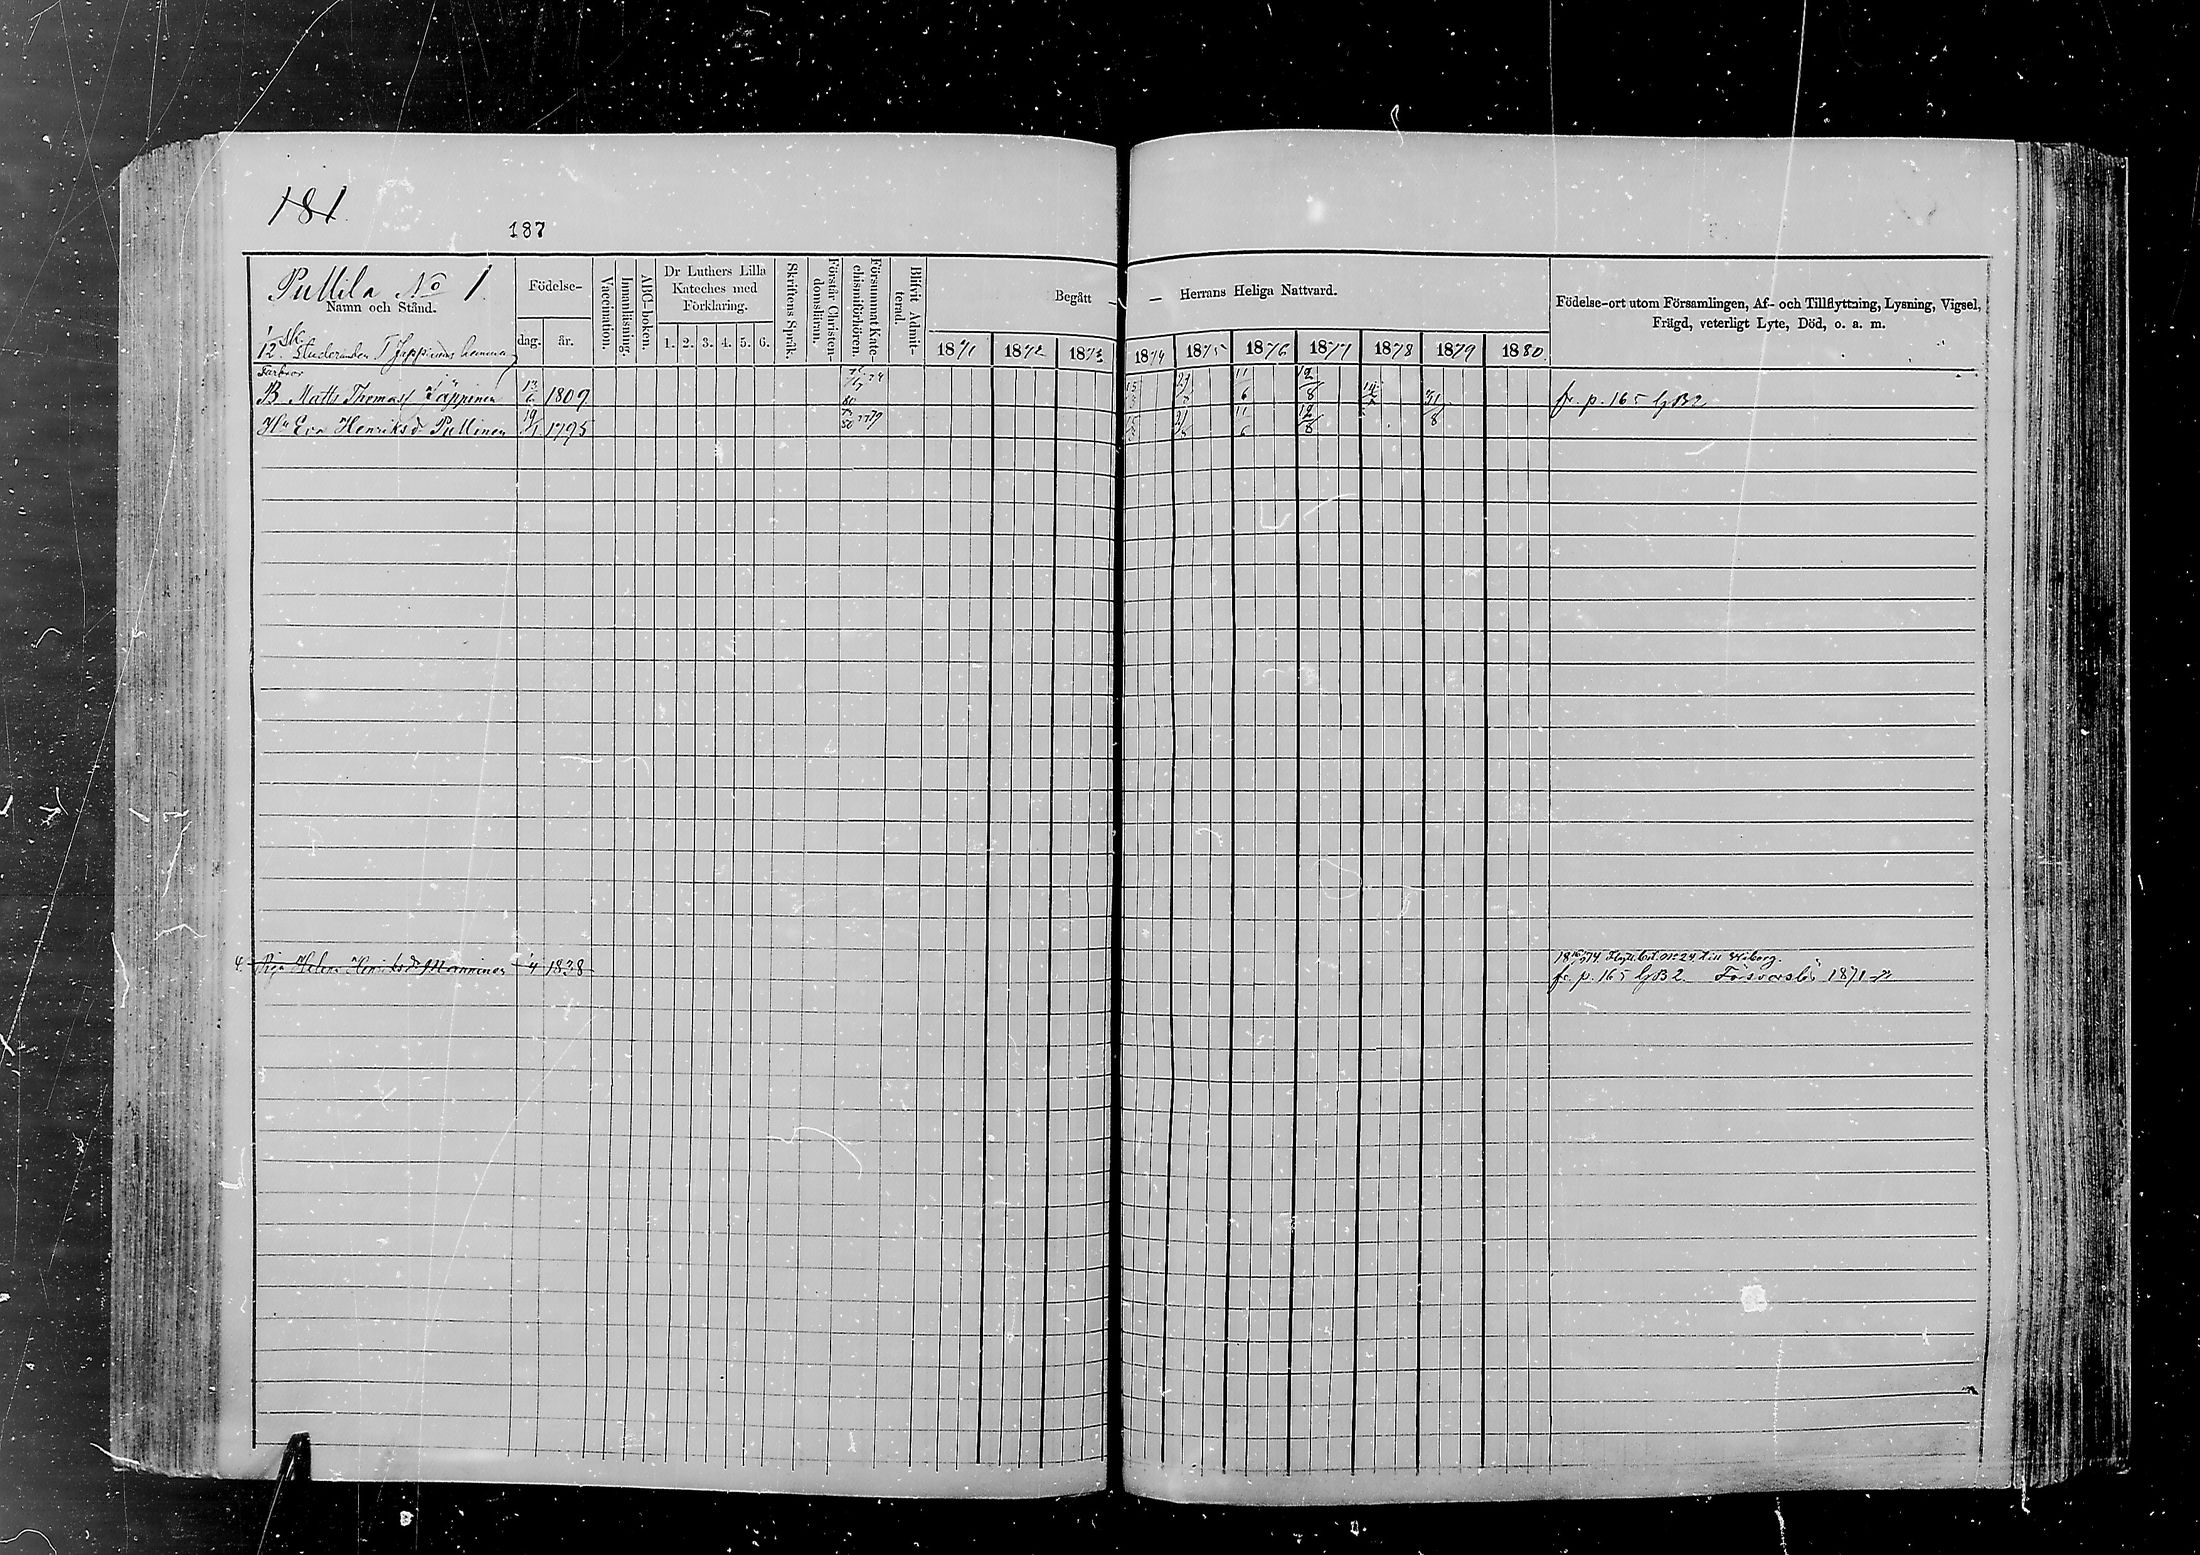 181
187
Pullila No 1.
Namn och Stånd.
Födelse-
dag. år.
Vaccination.
Innanläsning.
ABC-boken.
Dr Luthers Lilla
Kateches med
Förklaring.
1. 2. 3. 4. 5. 6.
Skriftens Språk.
Förstår Christen-
domsläran.
Försummat Kate-
chismiförhören.
Blifvit Admit-
terad.
Begått — — Herrans Heliga Nattvard.
1871 1872 1873 1874 1875 1876 1877 1878 1879 1880
Födelse-ort utom Församlingen, Af- och Tillflyttning, Lysning, Vigsel,
Frägd, veterligt Lyte, Död, o. a. m.
Studeranden T Jäppinens hemman
Farbror
B. Matts Thomass Jäppinen 1809 11/6 12/8 fr. p. 165 LgB 2
Hu Eva Henriksdr Pullinen 1795 11/6 12/8 31/8
4. Piga Helena Henriksdr Manninen 4 1838
74 Flytt. bet. No 24 till Wiborg.
fr. p. 165 LgB 2. 1871